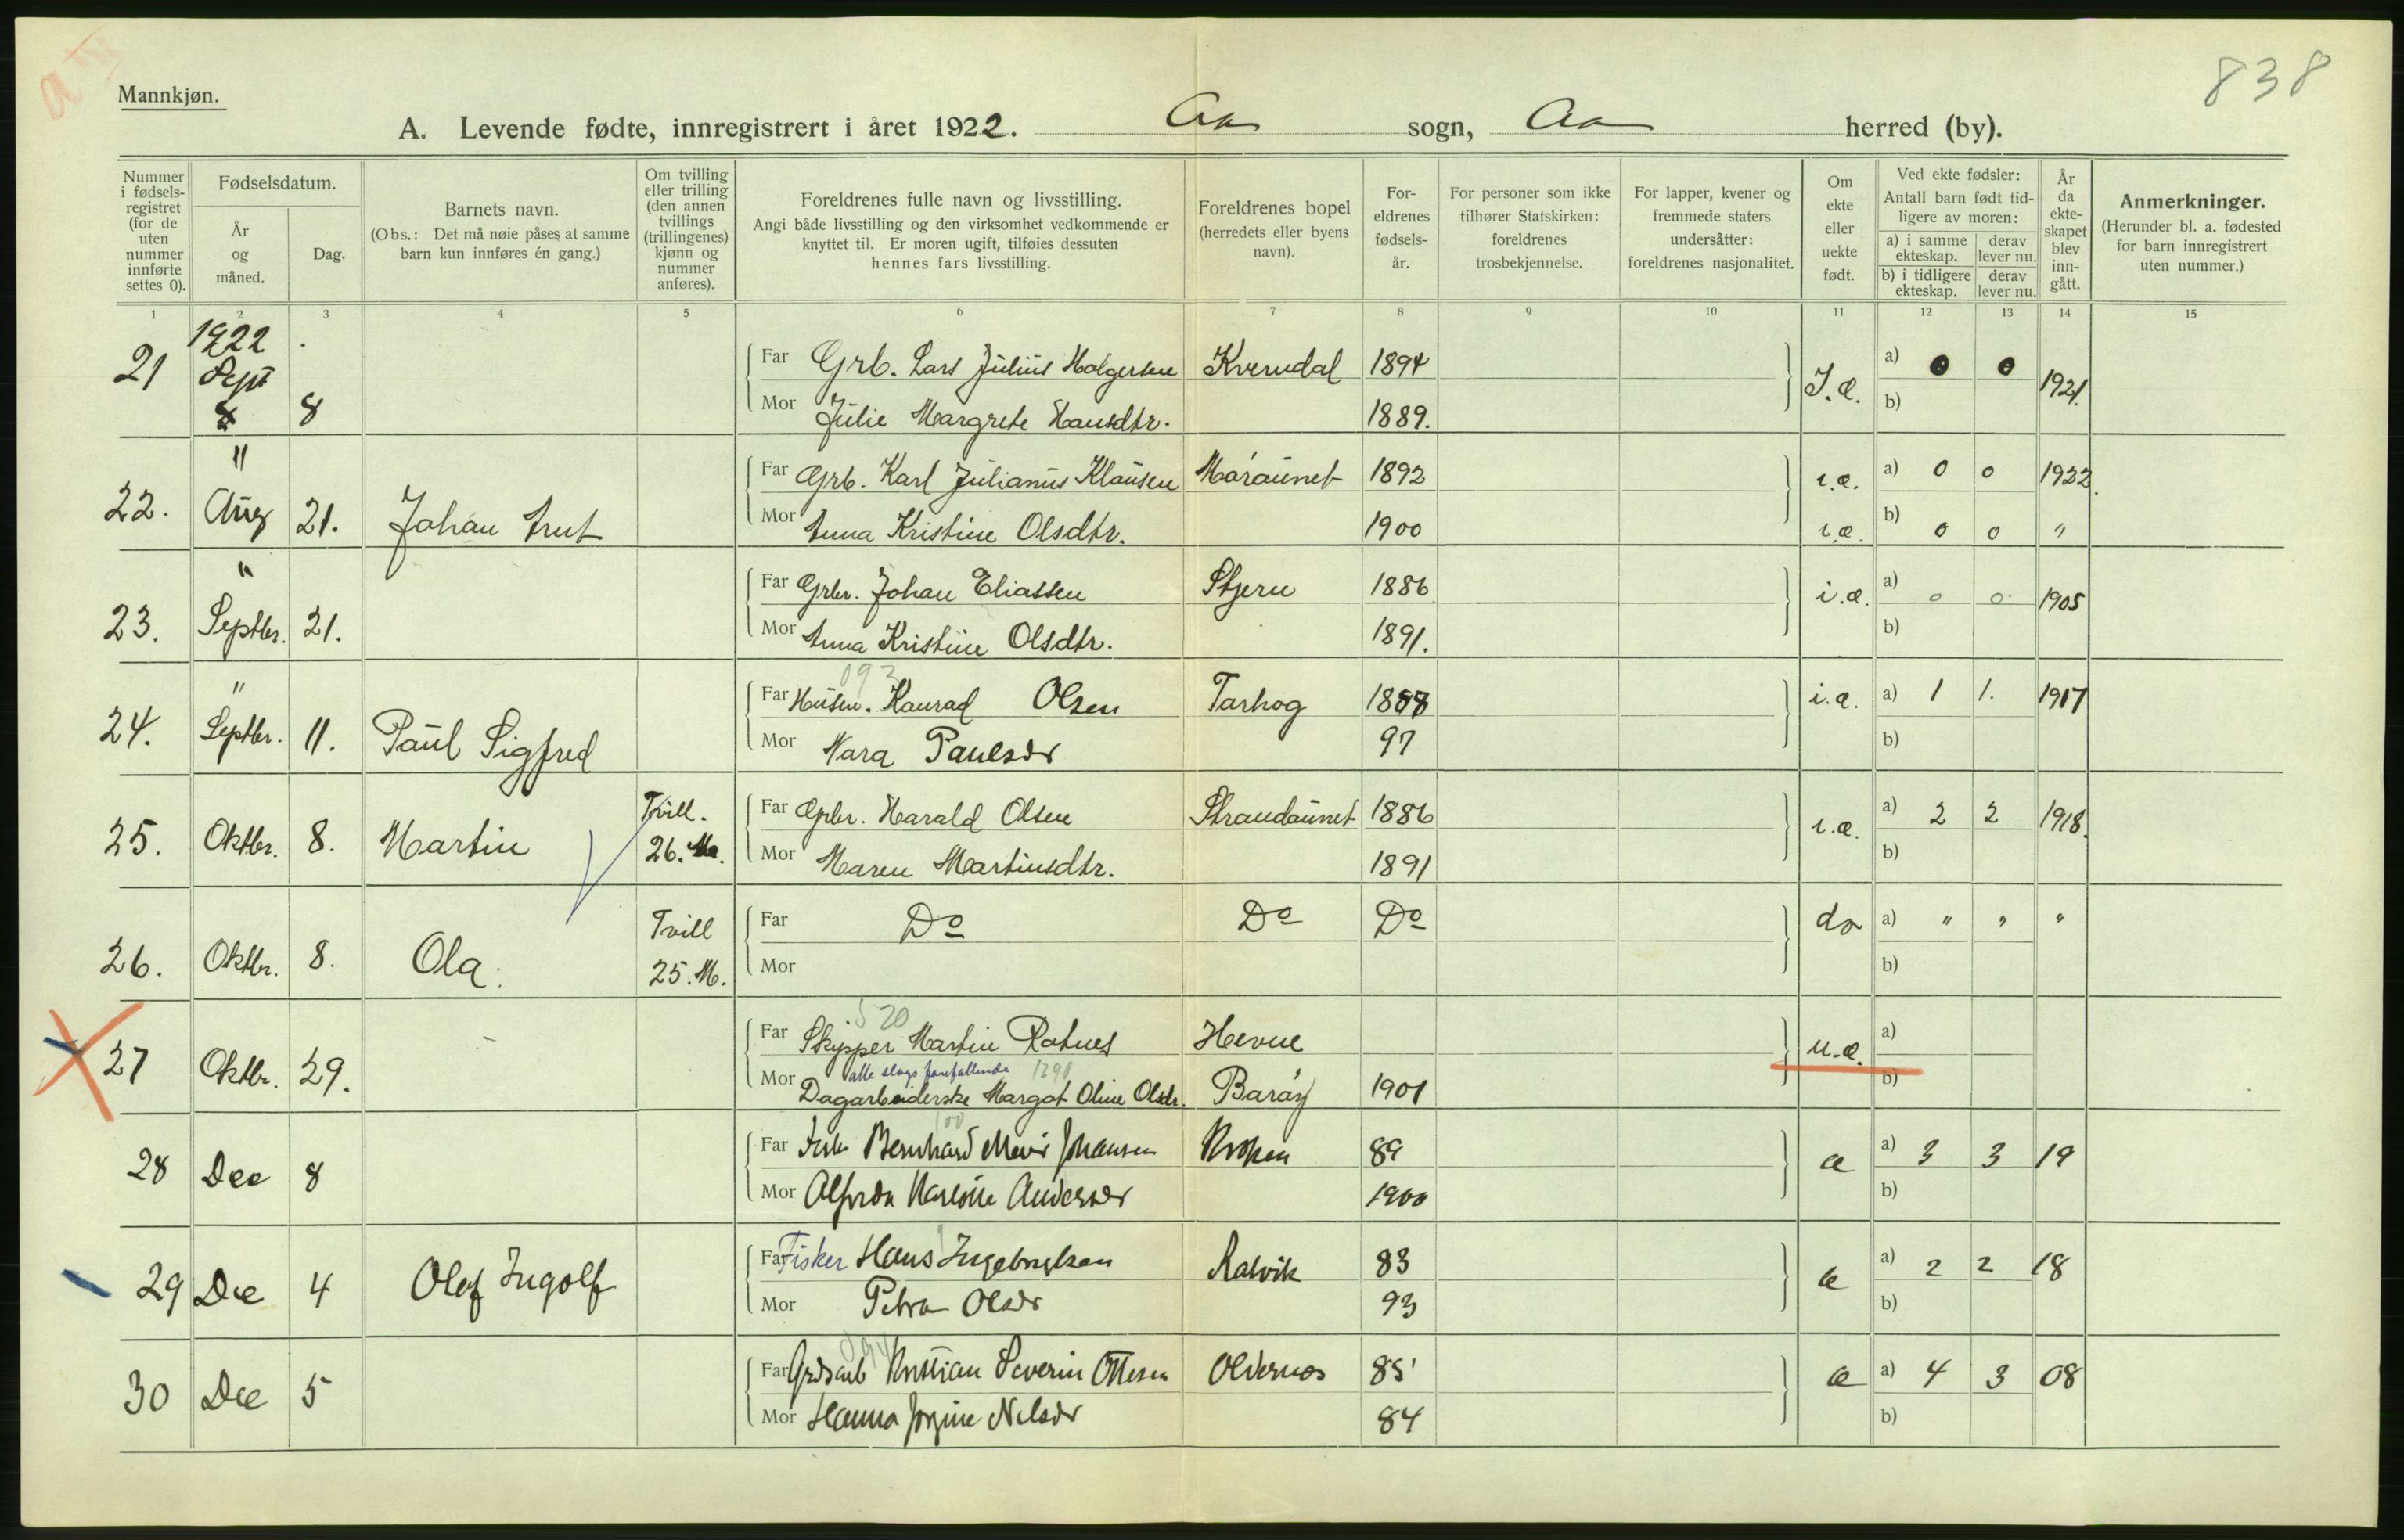 838
Mannkjøn.
A. Levende fødte, innregistrert i året 1922. Aa sogn, Aa herred (by).
Nummer i fødsels-registret (for de uten nummer innførte settes 0).
Fødselsdatum.
År og måned.
Dag.
Barnets navn.
(Obs.: Det må nøie påses at samme barn kun innføres én gang.)
Om tvilling eller trilling (den annen tvillings (trillingenes) kjønn og nummer anføres).
Foreldrenes fulle navn og livsstilling.
Angi både livsstilling og den virksomhet vedkommende er knyttet til. Er moren ugift, tilføies dessuten hennes fars livsstilling.
Foreldrenes bopel (herredets eller byens navn).
For-eldrenes fødsels-år.
For personer som ikke tilhører Statskirken: foreldrenes trosbekjennelse.
For lapper, kvener og fremmede staters undersåtter: foreldrenes nasjonalitet.
Om ekte eller uekte født.
Ved ekte fødsler: Antall barn født tid-ligere av moren:
a) i samme ekteskap. derav lever nu.
b) i tidligere ekteskap. derav lever nu.
År da ekte-skapet blev inn-gått.
Anmerkninger.
(Herunder bl. a. fødested for barn innregistrert uten nummer.)
1 2 3 4 5 6 7 8 9 10 11 12 13 14 15
21 1922 Sept 8 Far Grb. Lars Julius Holgersen Kverndal 1894 I.æ. a) 0 0 1921.
Mor Julie Margrete Hansdtr. 1889. b)
22. " Aug 21. Johan Far Grb. Karl Julianus Klausen Måraunet 1892 i.æ. a) 0 0 1922.
Mor Anna Kristine Olsdtr. 1900 i.æ. b) 0 0 "
23. " Septbr. 21. Far Grbr. Johan Eliassen Stjern 1886 i.æ. a) 0 0 1905
Mor Anna Kristine Olsdtr. 1891. b)
093
24. " Septbr. 11. Paul Sigfred Far Konrad Olsen Tarhog 1888 i.æ. a) 1 1. 1917
Mor Mara Paulsdr 97 b)
25. Oktbr. 8. Martin Tvill. 26. M. Far Harald Olsen Strandaunet 1886 i.æ. a) 2 2 1918.
Mor Maren Martinsdtr. 1891 b)
26. Oktbr. 8. Ola. Tvill 25. M. Far Do Do Do do a) " " "
Mor b)
520
27 Oktbr. 29. Far Skipper Martin Ratnes Hevne u.æ. a)
alle slags forefallende 1290
Mor Dagarbeiderske Margot Oline Olsdr. Barøy 1901 b)
28 Dec 8 Far Bernhard Johansen 89 æ a) 3 3 19
Mor Andersdr 1900 b)
29 Dec 4 Olef Ingolf Far Fisker Hans Ingebrigtsen Ratvik 83 æ a) 2 2 18
Mor Petra Olsdr 93 b)
30 Dec 5 Far Kristian Severin Ottesen Oldernes 85 æ a) 4 3 08
Mor Hanna Jørgine Nilsdr 84 b)